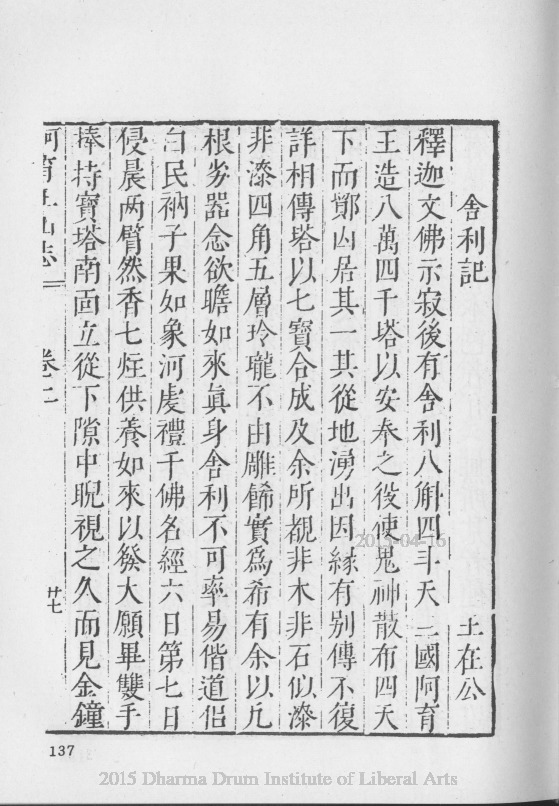 舍利記 王在公
釋迦文佛示寂後有舍利八斛四斗天國阿育
王造八萬四千塔以安奉之役使鬼神散布四天
下而鄮山居其一其從地湧出因緣有別傳不復
詳相傳塔以七寶合成及余所覩非木非石似漆
非漆四角五層玲瓏不由雕餙實爲希有余以凢
根劣器念欲瞻如來眞身舍利不可率易偕道侶
白民衲子果如象河虔禮千佛名經六日第七日
侵晨兩臂然香七炷供養如來以發大願畢雙手
捧持寶塔南面立從下隙中睨視之久而見金鐘
阿育王山志 卷二 廿七
137
2015-04-16
2015 Dharma Drum Institute of Liberal Arts